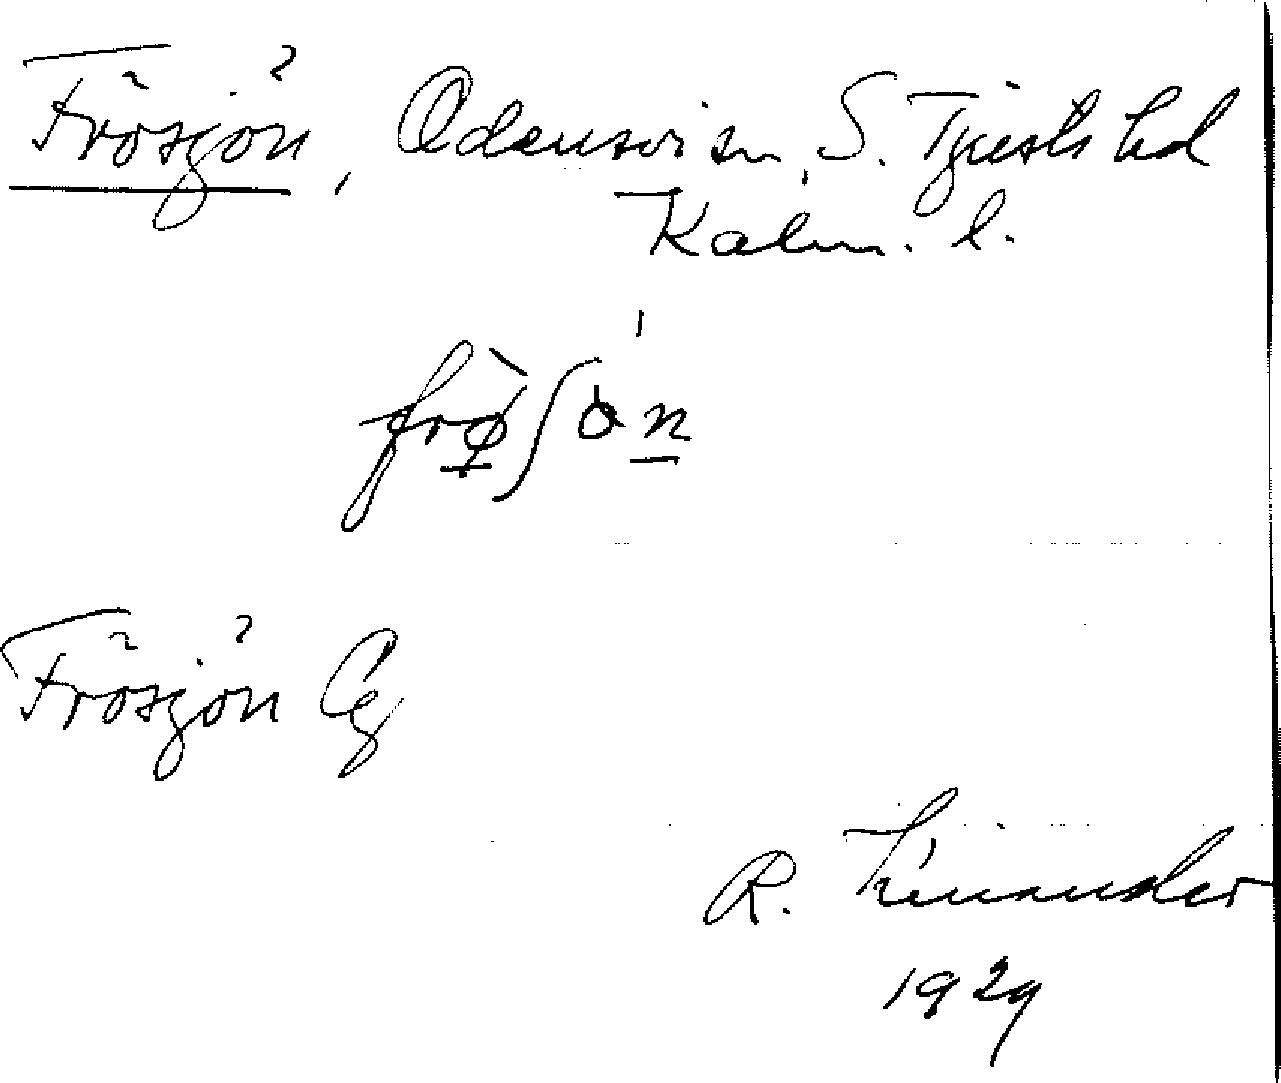 Frösjön, Odensvi sn, S. Tjusts hd
Kalm. l.
Frösjön
R. Linander
1929